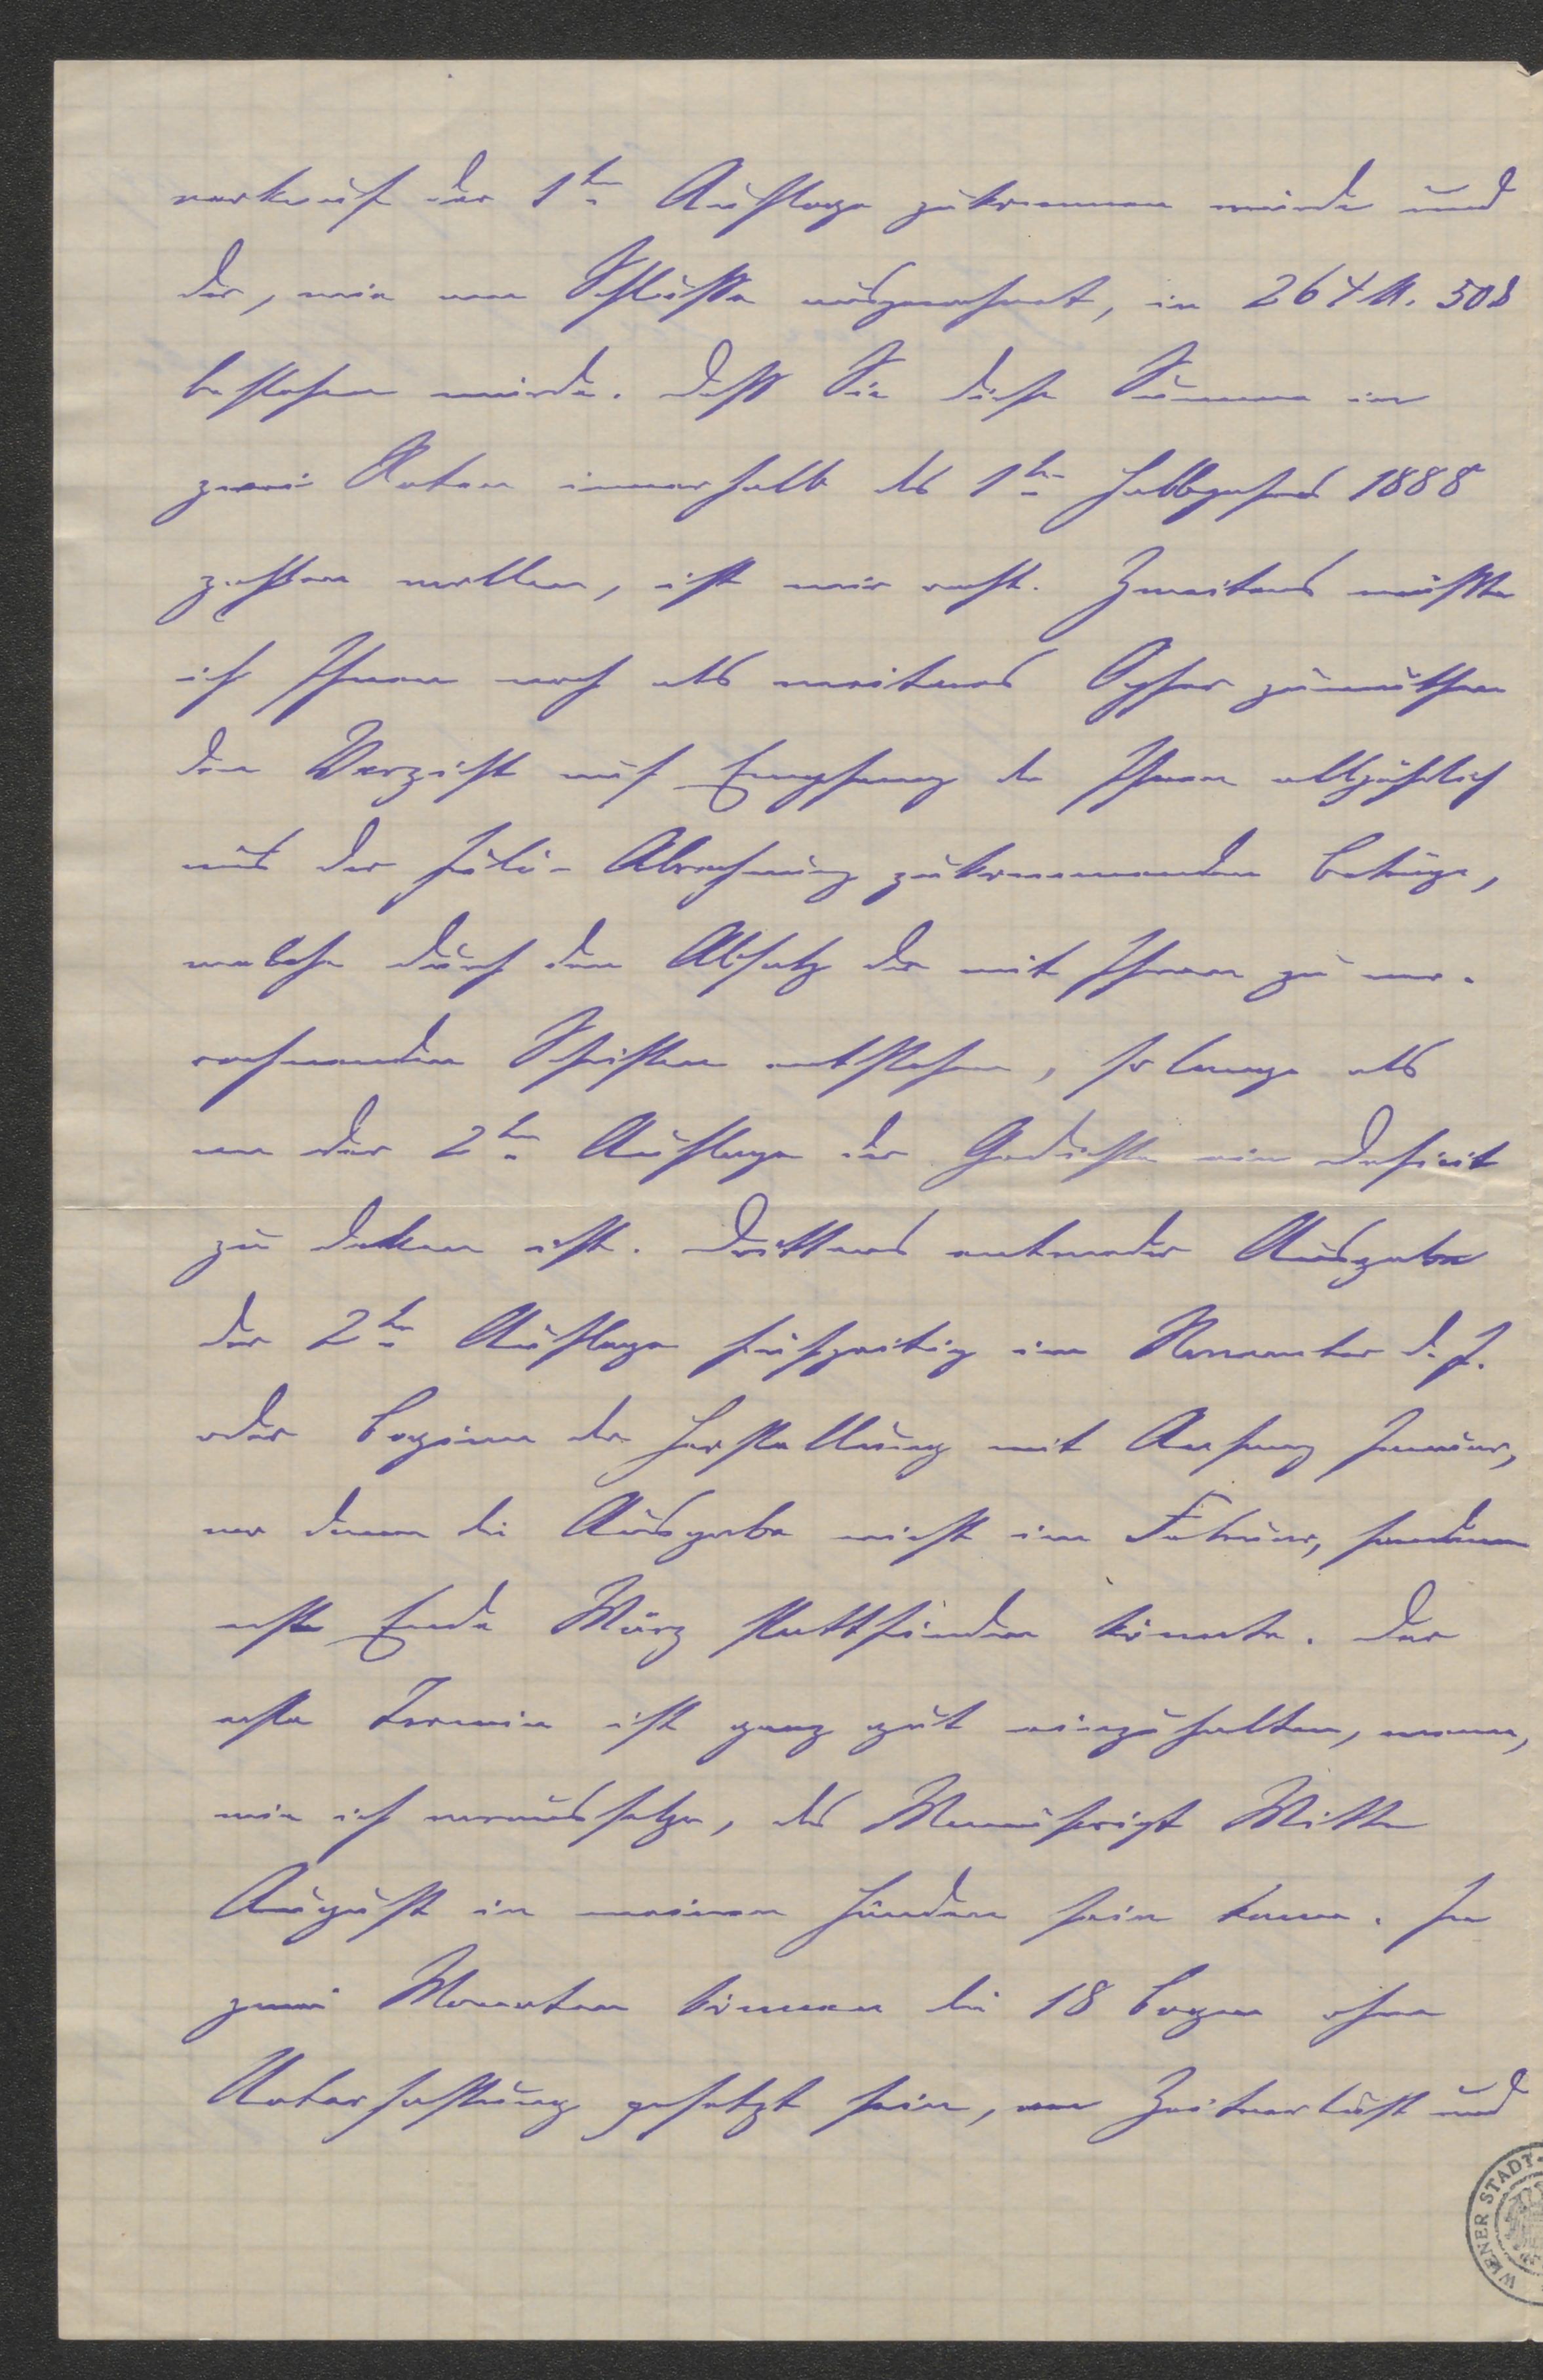 verkauf der 1ten Auflage zukommen würde und
der, wie am Schlusse ausgerechnet, in 264 M. 50 δ
bestehen würde. Daß Sie diese Summe in
zwei Raten innerhalb des 1ten Halbjahres 1888
zahlen wollen, ist mir recht. Zweitens müßte
ich Ihnen noch als weiteres Opfer zumuthen
den Verzicht auf Empfang der Ihnen alljährlich
aus der Juli-Abrechnung zukommenden Beträge,
welche durch den Absatz der mit Ihnen zu ver-
rechnenden Schriften entstehen, so lange als
an der 2ten Auflage der Gedichte ein Deficit
zu decken ist. Drittens entweder Ausgabe
der 2ten Auflage frühzeitig im November d. J.
oder Beginn der Herstellung mit Anfang Januar,
wo dann die Ausgabe nicht im Februar, sondern
erst Ende März stattfinden könnte. Der
erste Termin ist ganz gut einzuhalten, wenn,
wie ich voraussetze, das Manuscript Mitte
August in meinen Händen sein kann. In
zwei Monaten können die 18 Bogen ohne
Überhastung gesetzt sein, wo Zeitverlust und
WIENER STADT-